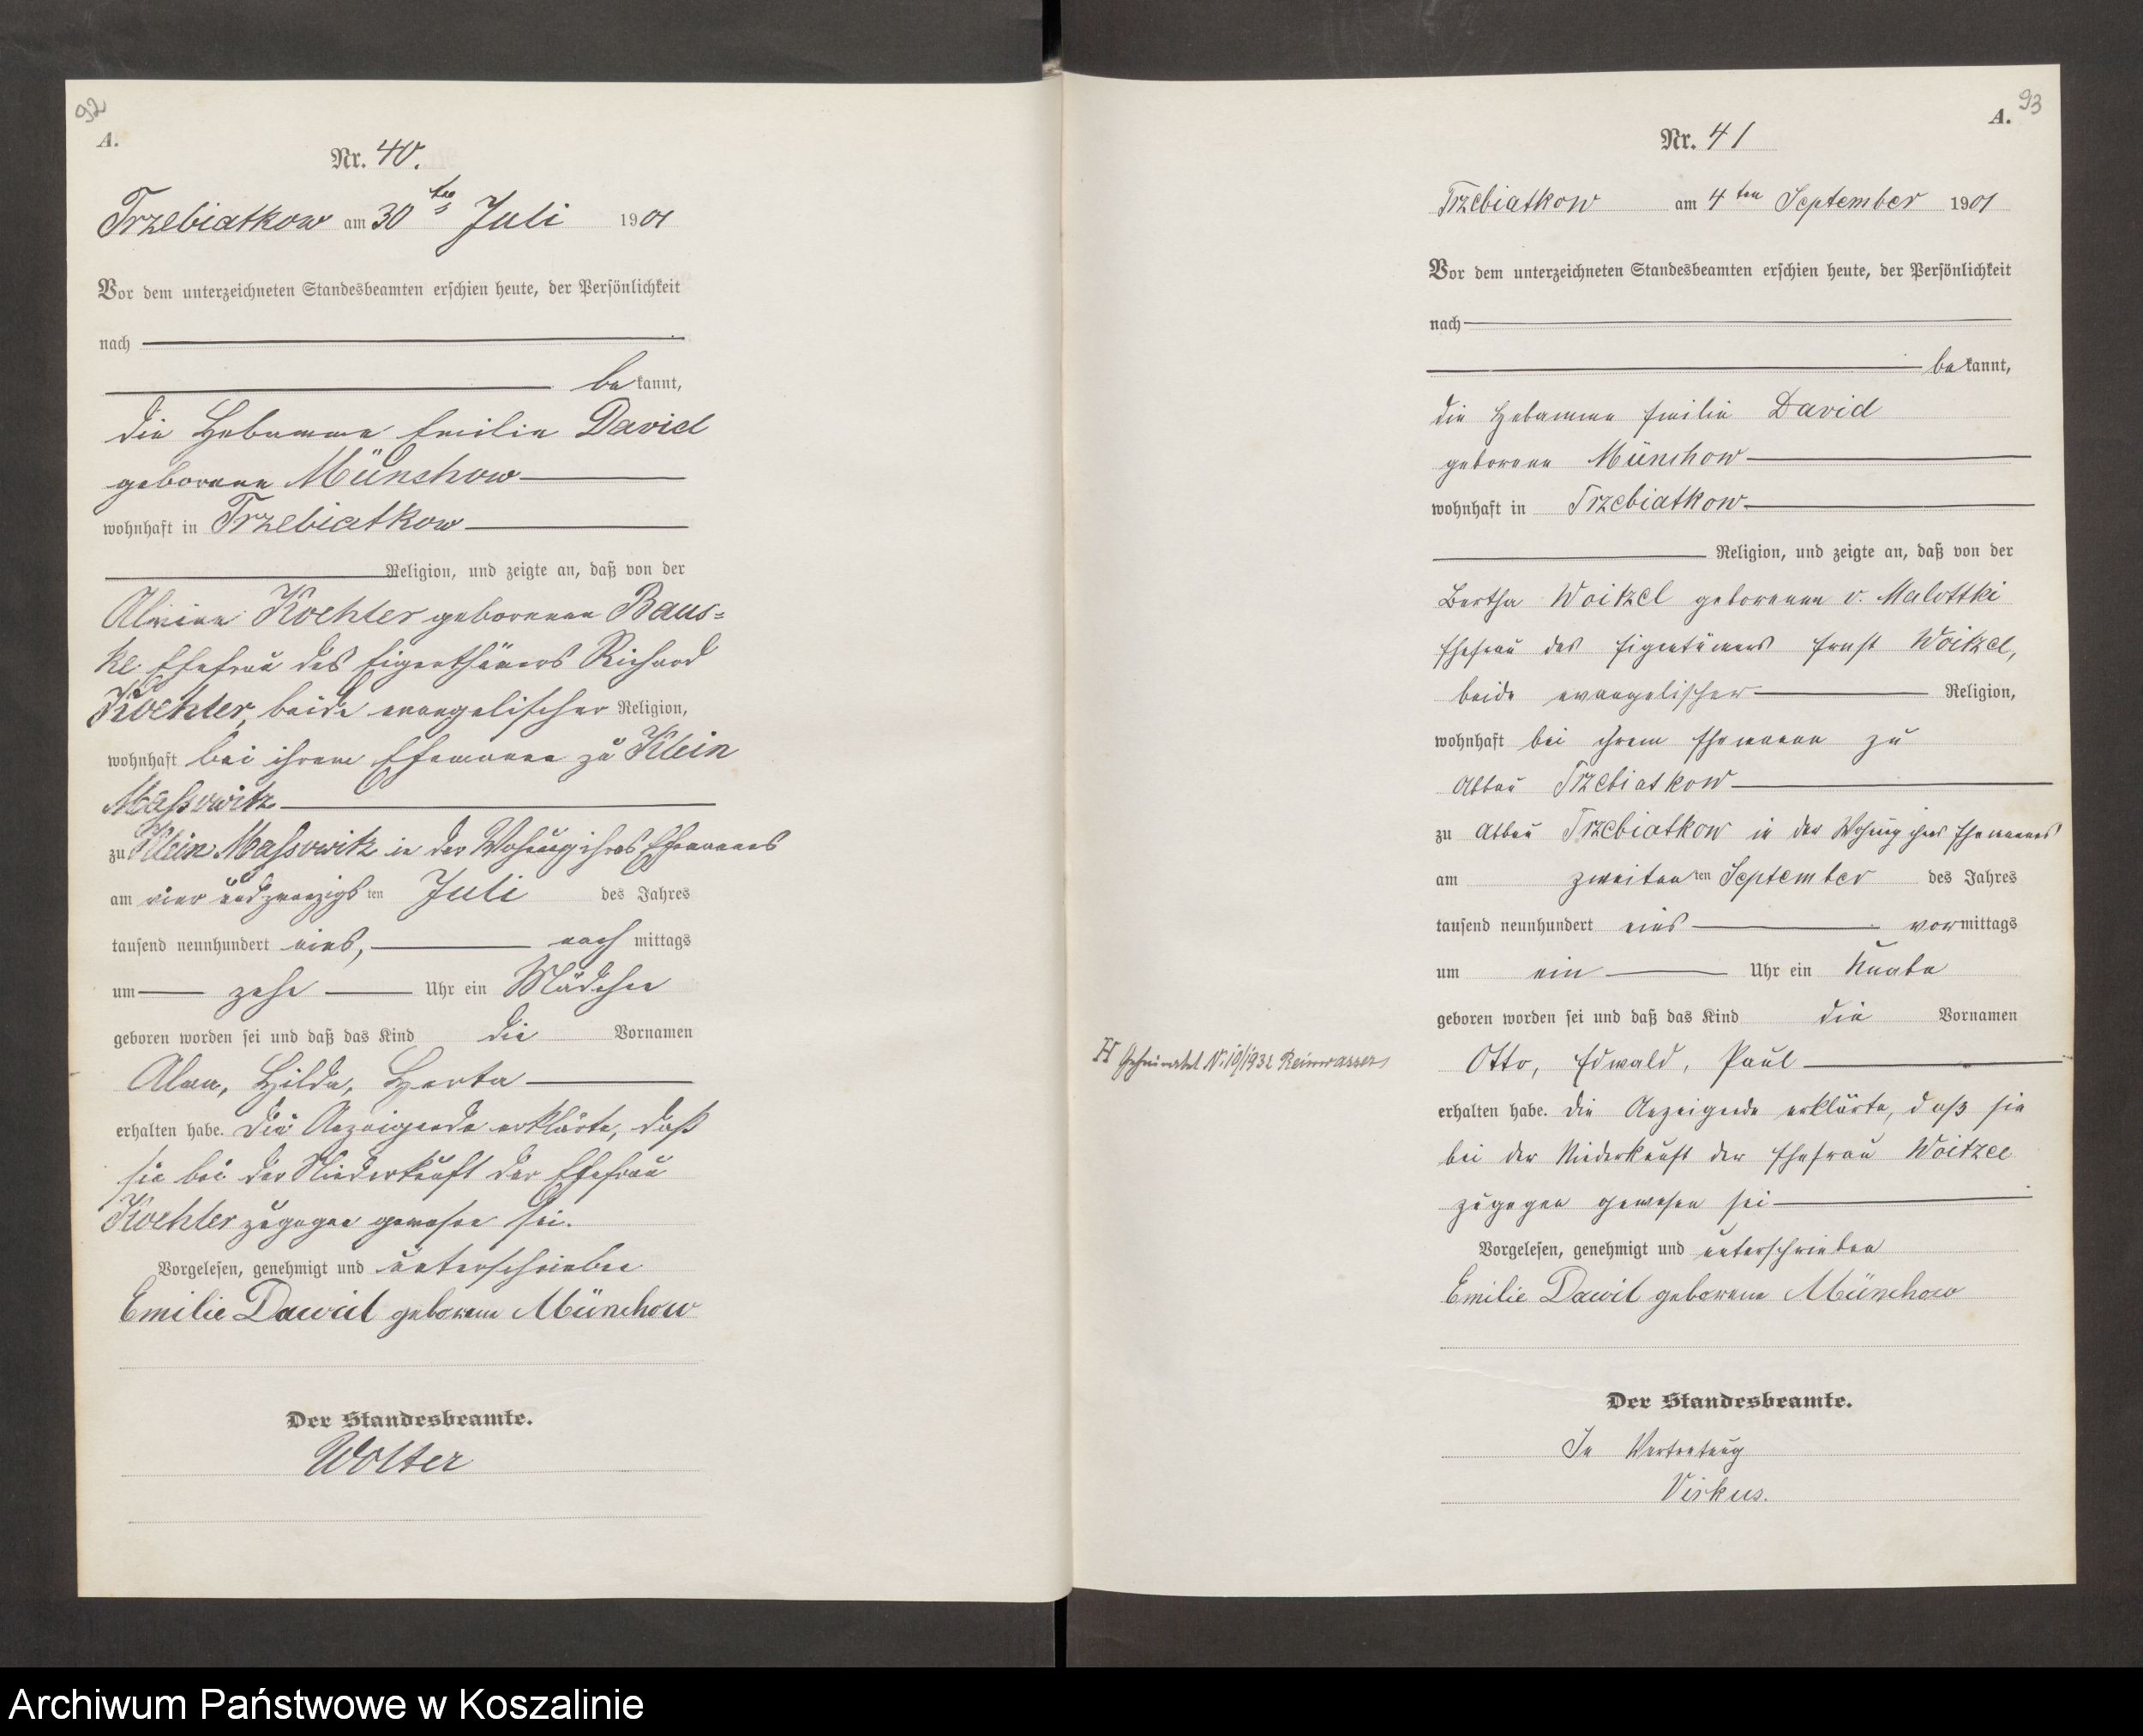 92
A.
Nr. 40.
Trzebiatkow am 30ten Juli 1901
Vor dem unterzeichneten Standesbeamten erschien heute, der Persönlichkeit
nach
bekannt,
die Hebamme Emilie David
geborene Münchow
wohnhaft in Trzebiatkow
Religion, und zeigte an, daß von der
Koehler geborenen Baus=
ke Ehefrau des Eigenthümers Richard
Koehler, beide evangelischer Religion,
wohnhaft bei ihrem Ehemanne zu Klein
Massowitz
zu Klein Massowitz in der Wohnung ihres Ehemannes
am vier und zwanzigsten Juli des Jahres
tausend neunhundert eins, nachmittags
um zehn Uhr ein Mädchen
geboren worden sei und daß das Kind die Vornamen
Hilda, Herta
erhalten habe. Die Anzeigende erklärte, daß
sie bei der Niederkunft der Ehefrau
Koehler zugegen gewesen sei.
Vorgelesen, genehmigt und unterschrieben
Emilie Dawid geborene Münchow
Der Standesbeamte.
Wolter
93
A.
Nr. 41
Trzebiatkow am 4ten September 1901
Vor dem unterzeichneten Standesbeamten erschien heute, der Persönlichkeit
nach
bekannt,
die Hebamme Emilie David
geborene Münchow
wohnhaft in Trzebiatkow
Religion, und zeigte an, daß von der
Bertha Woitzel geborenen v. Malottki
Ehefrau des Eigentümers Ernst Woitzel,
beide evangelischer Religion,
wohnhaft bei ihrem Ehemanne zu
Abbau Trzebiatkow
zu Abbau Trzebiatkow in der Wohnung ihres Ehemannes
am zweiten ten September des Jahres
tausend neunhundert eins vormittags
um ein Uhr ein Knabe
geboren worden sei und daß das Kind die Vornamen
H Geheiratet N. 10/1932 Reinwasser
Otto, Edwald, Paul
erhalten habe. Die Anzeigende erklärte, daß sie
bei der Niederkunft der Ehefrau Woitzel
zugegen gewesen sei
Vorgelesen, genehmigt und unterschrieben
Emilie Dawid geborene Münchow
Der Standesbeamte.
In Vertretung
Virkus.
Archiwum Państwowe w Koszalinie